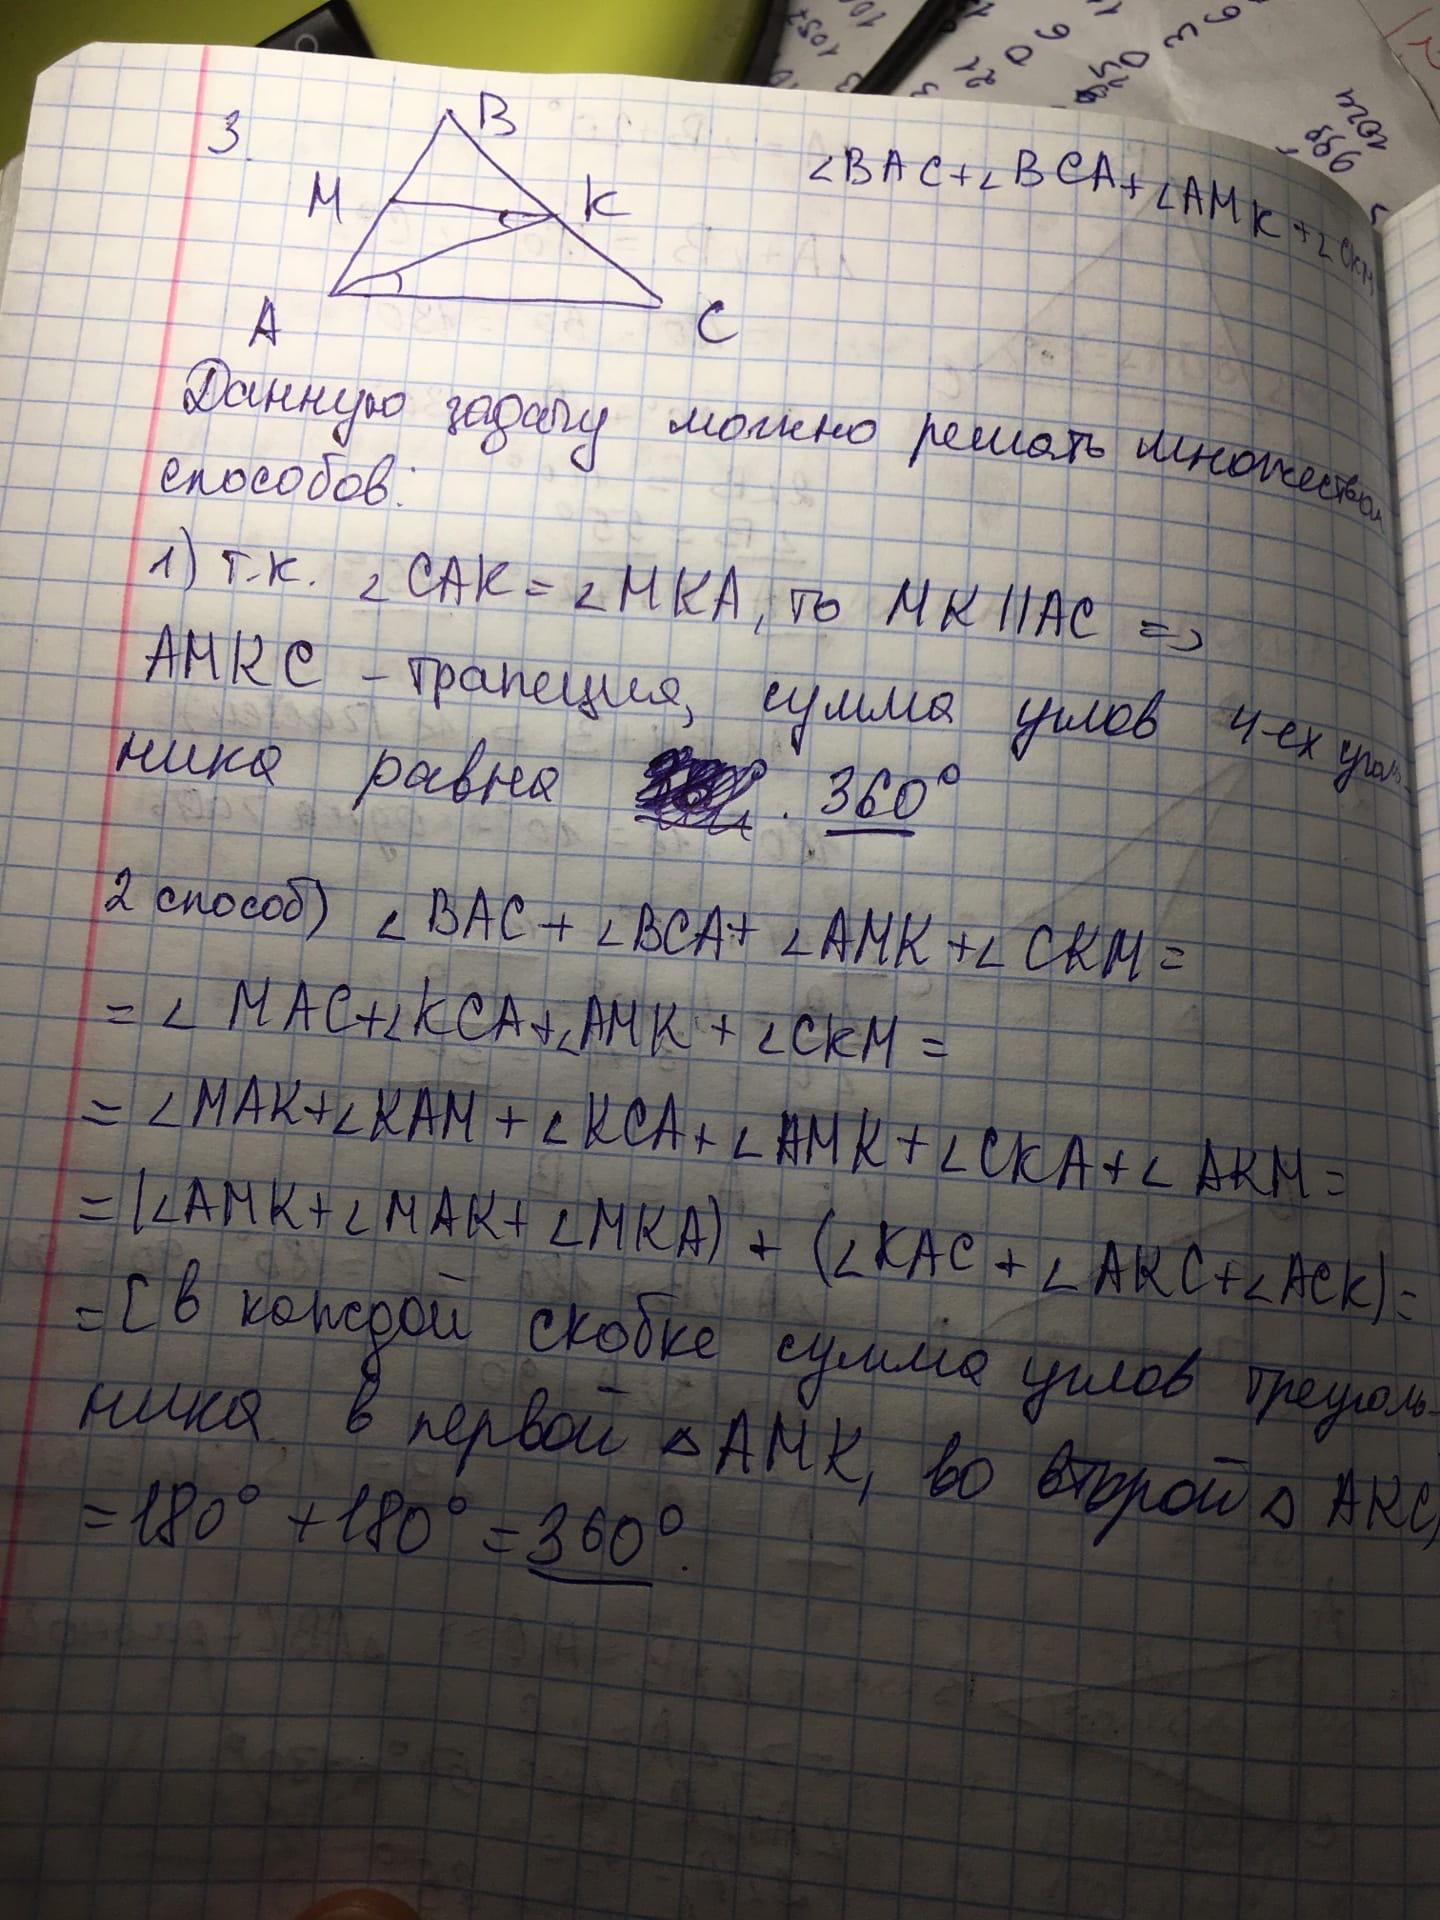 3.
B
M
K
A
C
∠BAC+∠BCA+∠AMK+∠CKM
Данную задачу можно решать множеством
способов:
1) т.к. ∠CAK=∠MKA, то MK||AC =>
AMKC - трапеция, сумма углов 4-ех уголь-
ника равна . 360°
2 способ) ∠BAC+∠BCA+∠AMK+∠CKM=
=∠MAC+∠KCA+∠AMK+∠CKM=
=∠MAK+∠KAM+∠KCA+∠AMK+∠CKA+∠AKM=
=(∠AMK+∠MAK+∠MKA)+(∠KAC+∠AKC+∠ACK)=
=[в каждой скобке сумма углов треуголь-
ника в первой △AMK, во второй △AKC]
=180°+180°=360°.